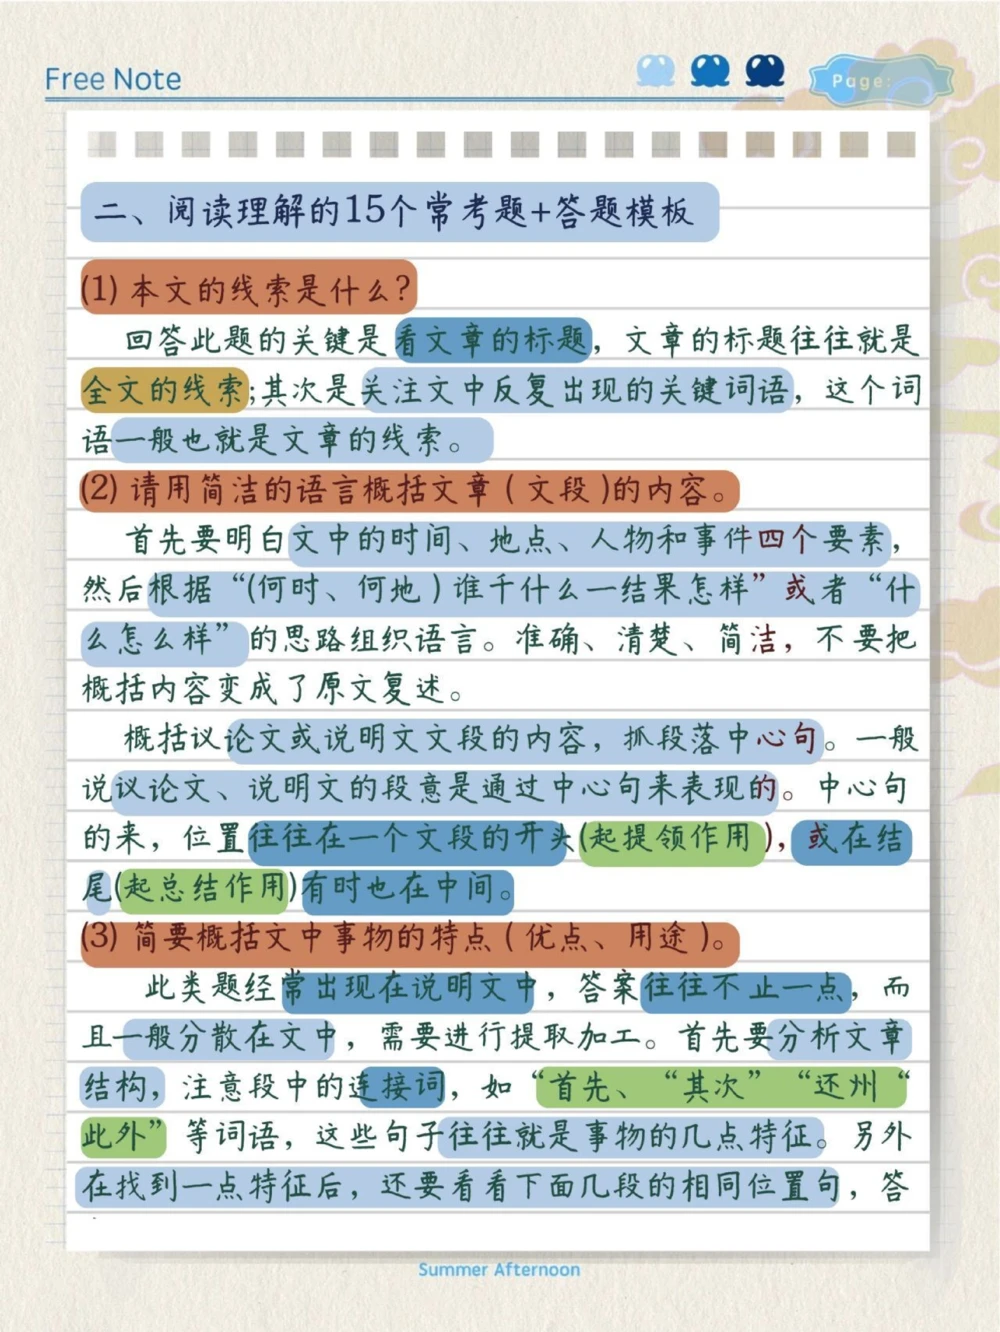 Free Note
Page:
二、阅读理解的15个常考题+答题模板
(1) 本文的线索是什么?
回答此题的关键是看文章的标题，文章的标题往往就是
全文的线索;其次是关注文中反复出现的关键词语，这个词
语一般也就是文章的线索。
(2) 请用简洁的语言概括文章（文段)的内容。
首先要明白文中的时间、地点、人物和事件四个要素，
然后根据“(何时、何地）谁千什么一结果怎样”或者“什
么怎么样”的思路组织语言。准确、清楚、简洁，不要把
概括内容变成了原文复述。
概括议论文或说明文文段的内容，抓段落中心句。一般
说议论文、说明文的段意是通过中心句来表现的。中心句
的来，位置往往在一个文段的开头(起提领作用)，或在结
尾(起总结作用)有时也在中间。
(3) 简要概括文中事物的特点（优点、用途)。
此类题经常出现在说明文中，答案往往不止一点，而
且一般分散在文中，需要进行提取加工。首先要分析文章
结构，注意段中的连接词，如“首先、“其次”“还州“
此外”等词语，这些句子往往就是事物的几点特征。另外
在找到一点特征后，还要看看下面几段的相同位置句，答
Summer Afternoon